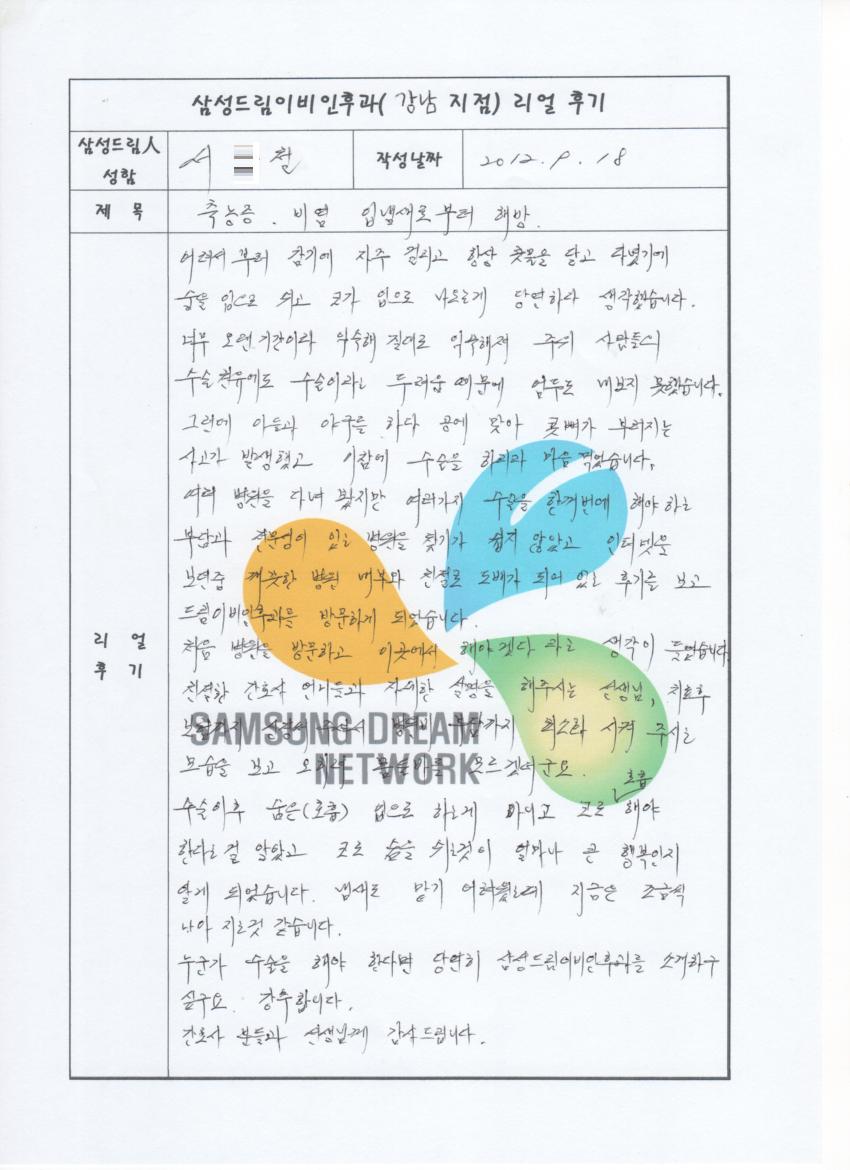 삼성드림이비인후과( 강남 지점) 리얼 후기
삼성드림人 성함
서 철
작성날짜
2012. 9. 18
제 목
축농증. 비염 입냄새로부터 해방.
리 얼 후 기
어려서 부터 감기에 자주 걸리고 항상 콧물을 달고 다녔기에
숨을 입으로 쉬고 코가 입으로 나오는게 당연하다 생각했습니다.
너무 오랜 기간이라 익숙해 질대로 익숙해져 주위 사람들의
수술권유에도 수술이라는 두려움 때문에 엄두도 내보지 못했습니다.
그런데 아들과 야구를 하다 공에 맞아 콧뼈가 부러지는
사고가 발생했고 이참에 수술을 하리라 마음 먹었습니다.
여러 병원을 다녀 봤지만 여러가지 수술을 한꺼번에 해야 하는
부담과 전문성이 있는 병원을 찾기가 쉽지 않았고 인터넷을
보던중 깨끗한 병원 내부와 친절로 도배가 되어 있는 후기를 보고
드림이비인후과를 방문하게 되었습니다.
처음 병원을 방문하고 이곳에서 해야겠다 라는 생각이 들었습니다
친절한 간호사 언니들과 자세한 설명을 해주시는 선생님, 치료후
병원비 부담까지 최소화 시켜 주시는
모습을 보고 오히려 몸둘바를 모르겠더군요.
수술이후 숨은(호흡) 입으로 하는게 아니고 코로 호흡 해야
한다는걸 알았고 코로 숨을 쉬는것이 얼마나 큰 행복인지
알게 되었습니다. 냄새도 맡기 어려웠는데 지금은 조금씩
나아 지는것 같습니다.
누군가 수술을 해야 한다면 당연히 삼성드림이비인후과를 소개하구
싶구요. 강추합니다.
간호사 분들과 선생님께 감사드립니다.
SAMSUNG DREAM
NETWORK